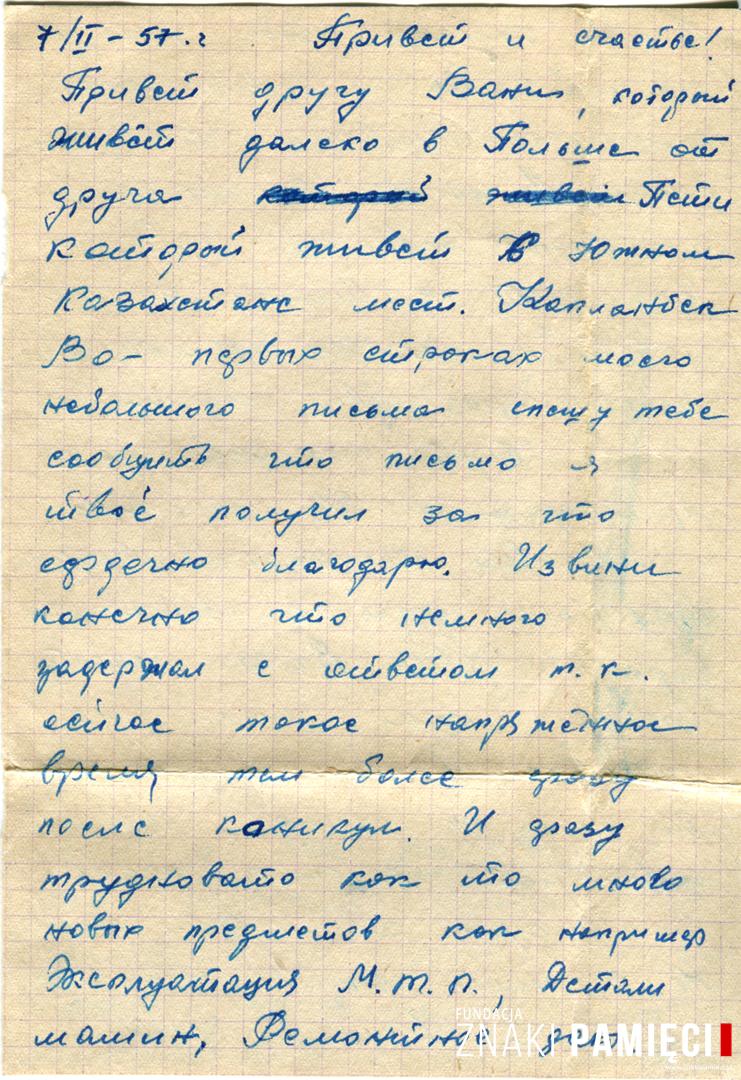 7/II – 57. г Привет и счастье!
Привет другу Вани, который
живёт далеко в Польше от
друга который живет Пети
который живет в Южном
Казахстане мест. Капланбек
Во- первых строках моего
небольшого письма спешу тебе
сообщить что письмо я
твоё получил за что
сердечно благодарю. Извини
конечно что немного
задержал с ответом т. к.
сейчас такое напряжённое
время тем более сразу
после каникул. И сразу
трудновато как то много
новых предметов как например
Эксплуатация М. т. п., Детали
машин, Ремонтное
FUNDACJA
ZNAKI PAMIĘCI